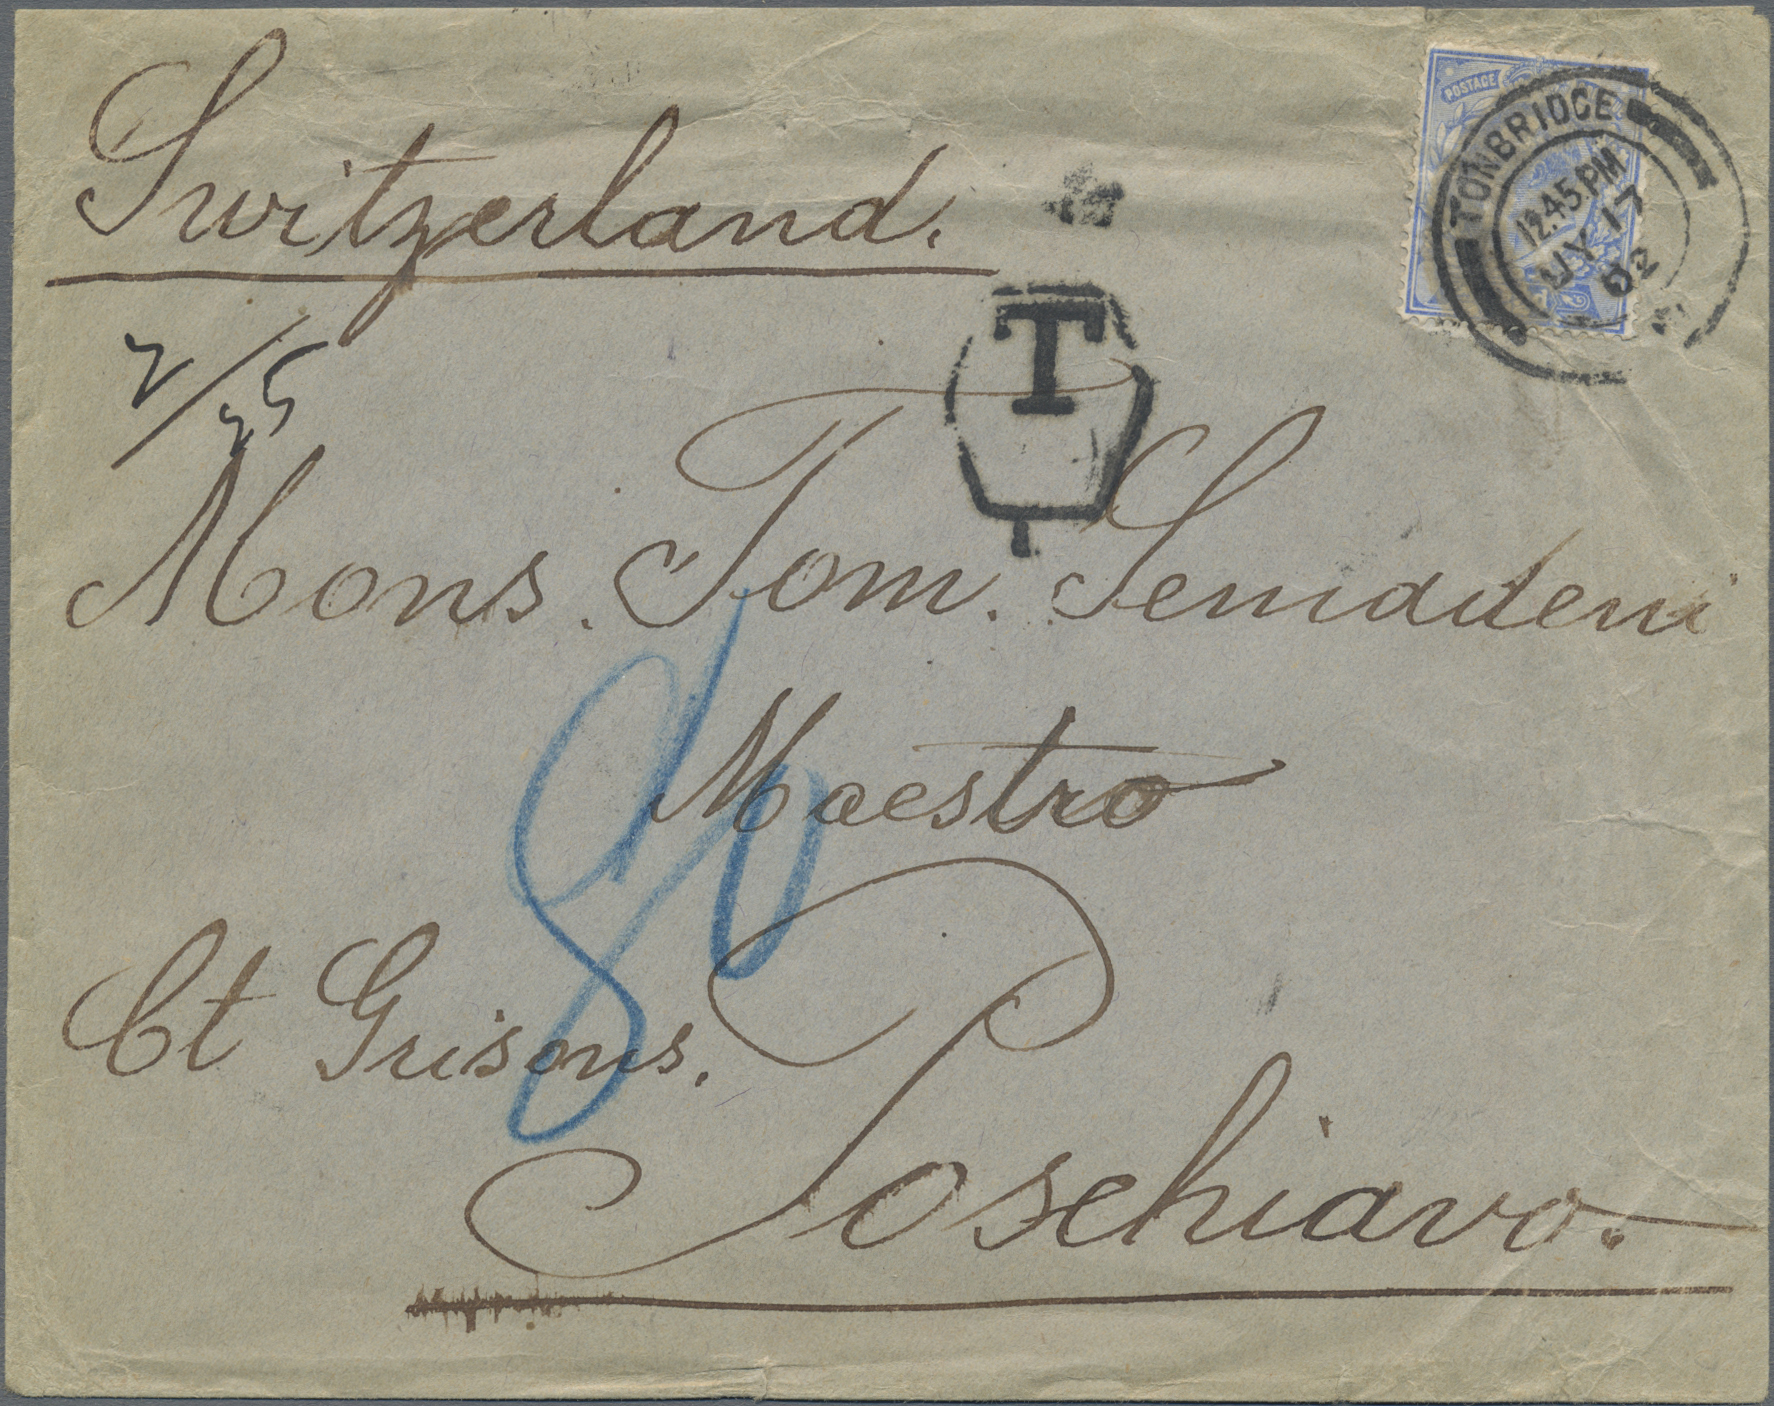 Switzerland.
POSTAGE
TONBRIDGE
12.45 PM
JY 17
02
T
2/25
Mons. Tom. Semadeni
Maestro
80
Ct Grisons.
Poschiavo.